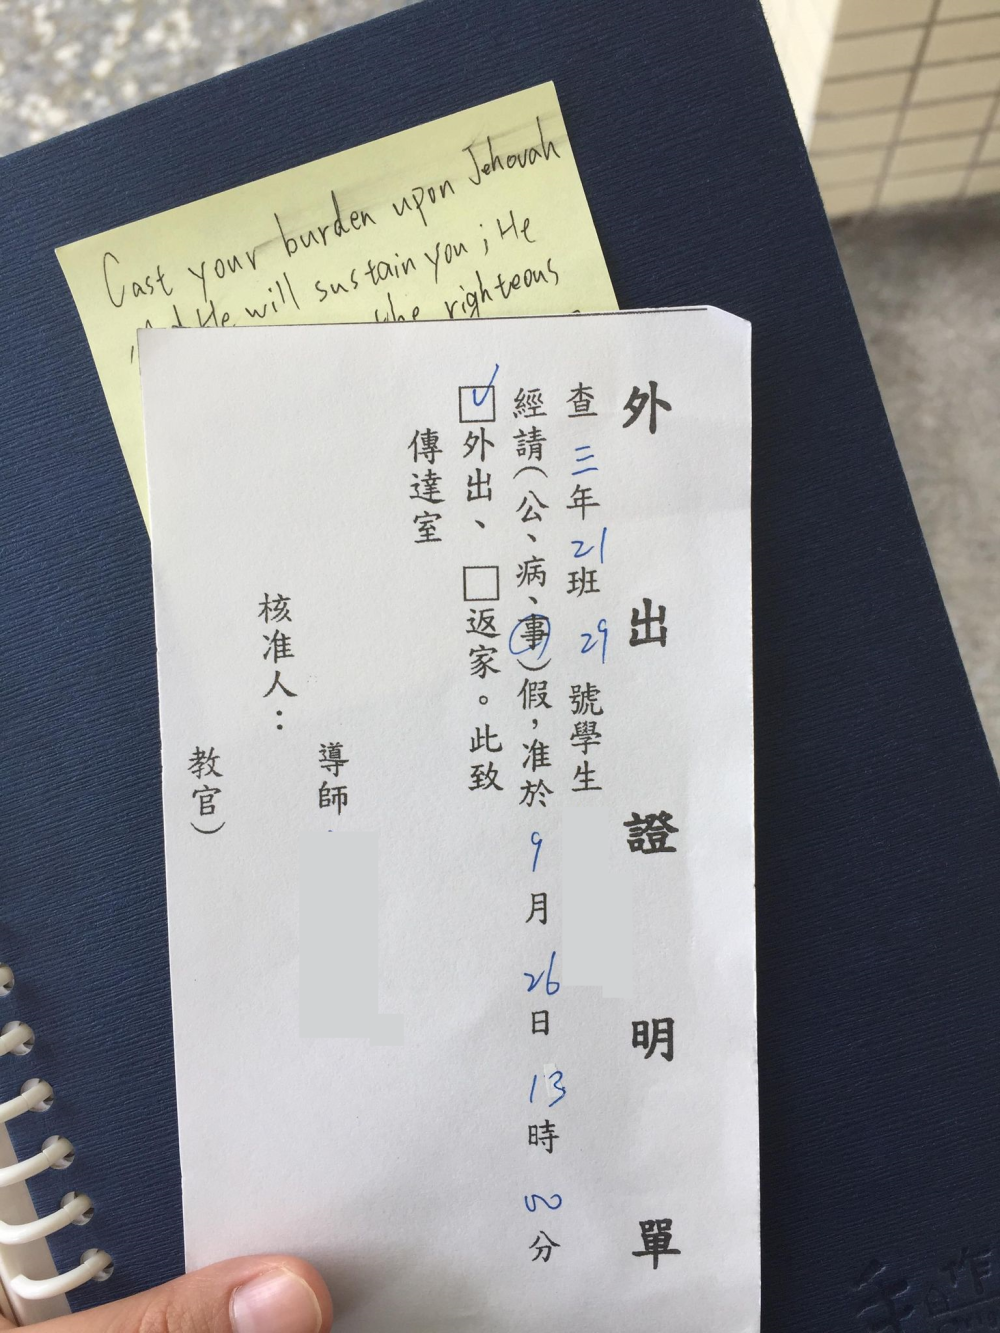 Cast your burden upon Jehovah
He will sustain you; He
the righteous
外出證明單
查三年21班29號學生
經請(公、病、事)假,准於9月26日13時分
☑外出、□返家。此致
傳達室
導師
核准人:
教官)